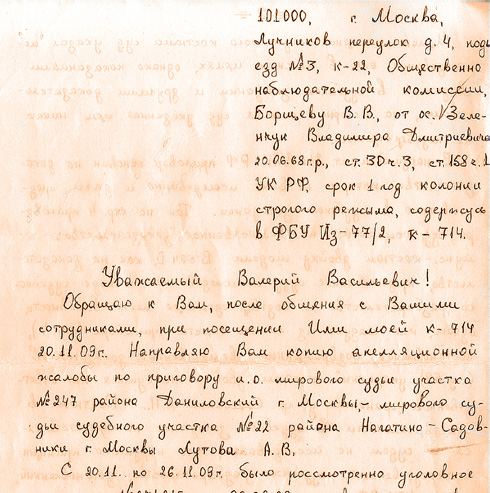 101000, г. Москва,
Лучников переулок д. 4, подъ
езд №3, к-22 Общественно
наблюдательной комиссии,
Борщеву В. В., от ос. Зеле-
нчук Владимира Дмитриевича
20.06.68г.р., ст. 30 ч. 3, ст. 158 ч. 1
УК РФ, срок 1 год колонии
строгого режима, содержусь
в ФБУ Из-77/2, к- 714.
Уважаемый Валерий Васильевич!
Обращаю к Вам, после общения с Вашими
сотрудниками, при посещении Ими моей к- 714
20.11.09г. Направляю Вам копию апелляционной
жалобы по приговору и.о. мирового судьи участка
№247 района Даниловский г. Москвы,- мирового су-
дьи судебного участка №22 района Нагатино-Садов-
ники г. Москвы А. В.
С 20.11. по 26.11.09г. было рассмотренно уголовное